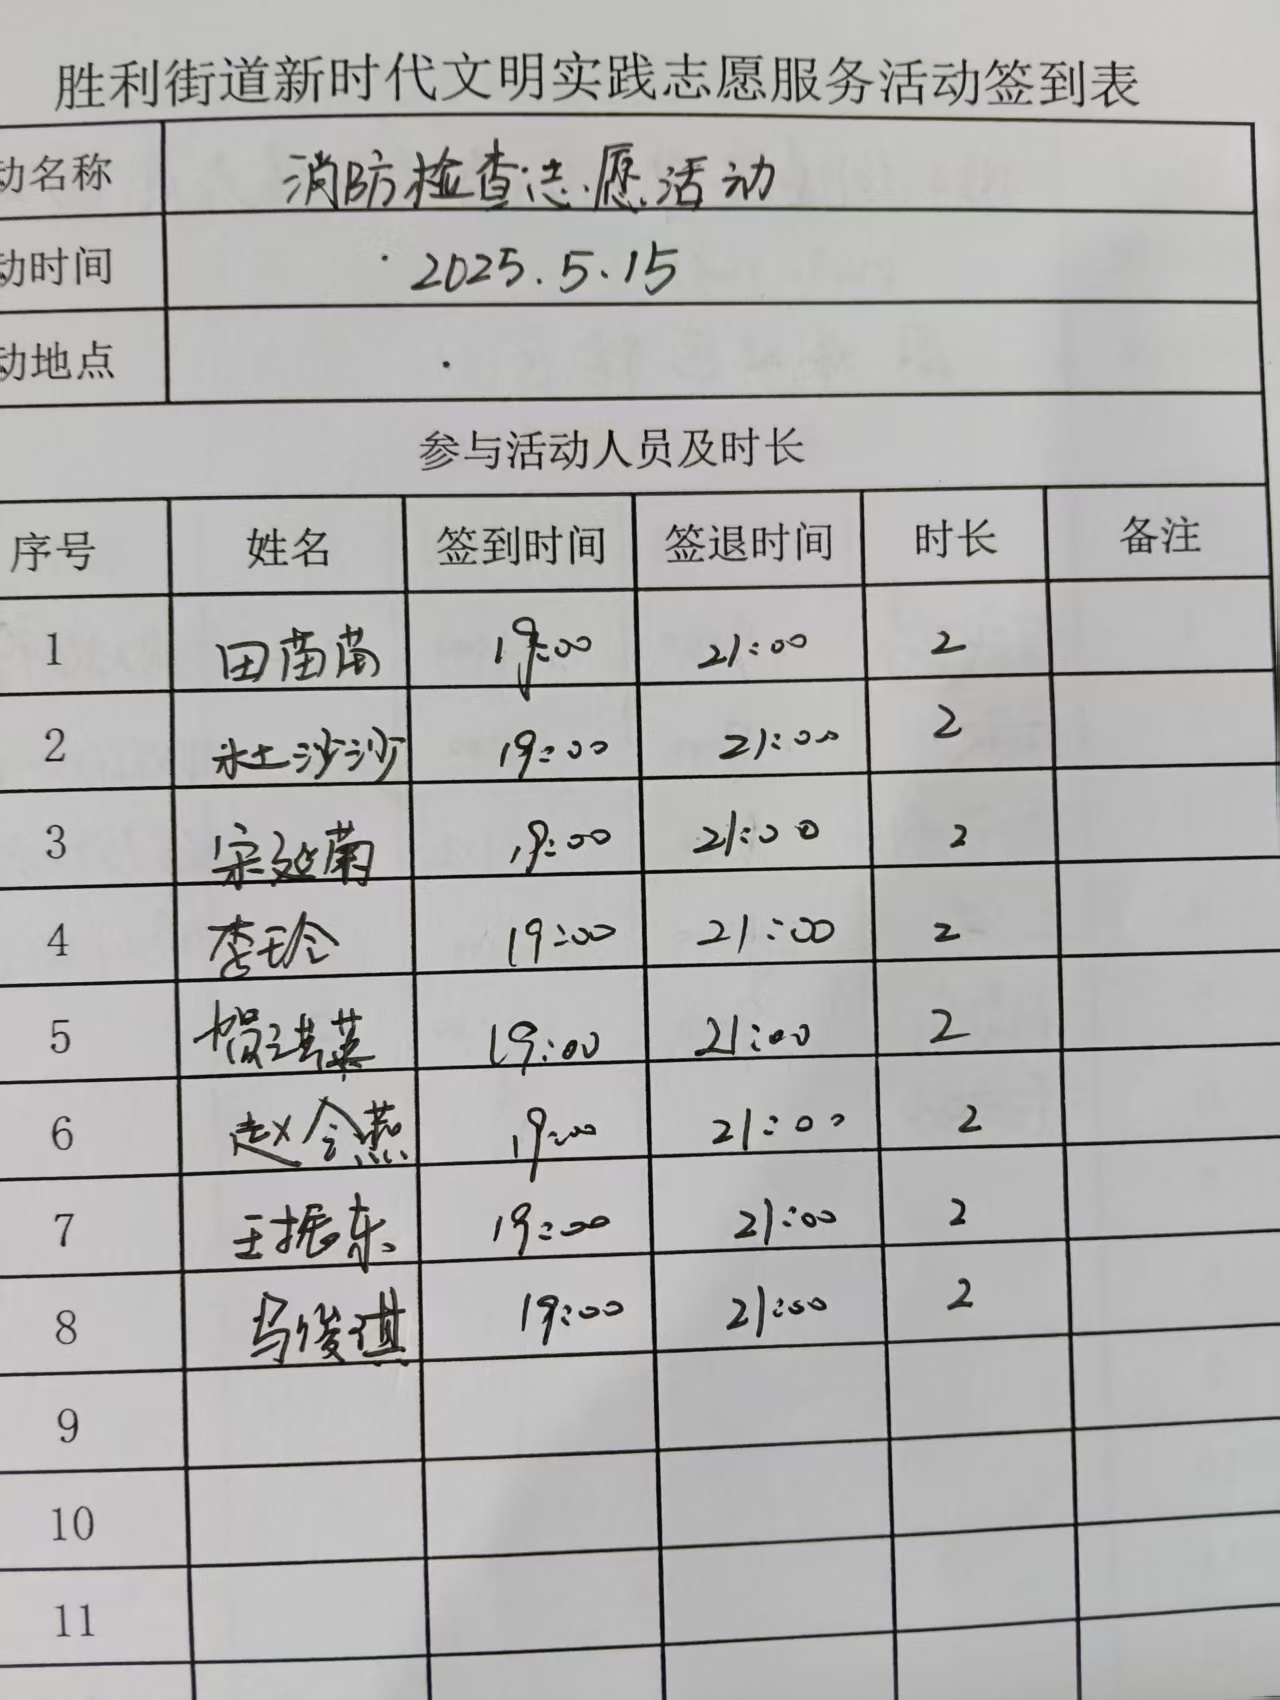 胜利街道新时代文明实践志愿服务活动签到表
动名称 消防检查志愿活动
动时间 2025.5.15
动地点
参与活动人员及时长
序号 姓名 签到时间 签退时间 时长 备注
1 田苗苗 19:00 21:00 2
2 杜沙沙 19:00 21:00 2
3 宋延菊 19:00 21:00 2
4 李玲 19:00 21:00 2
5 19:00 21:00 2
6 赵会燕 19:00 21:00 2
7 王振东 19:00 21:00 2
8 马俊琪 19:00 21:00 2
9
10
11